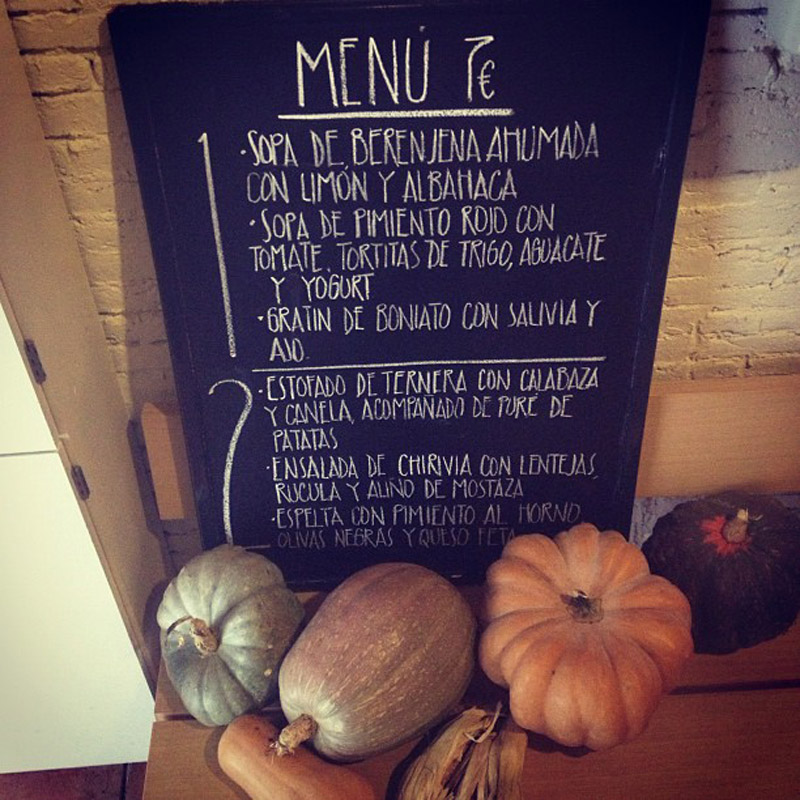 MENÚ 7€
1
·SOPA DE BERENJENA AHUMADA
CON LIMÓN Y ALBAHACA
·SOPA DE PIMIENTO ROJO CON
TOMATE, TORTITAS DE TRIGO, AGUACATE
Y YOGURT
·GRATIN DE BONIATO CON SALIVIA Y
AJO.
2
·ESTOFADO DE TERNERA CON CALABAZA
Y CANELA, ACOMPAÑADO DE PURÉ DE
PATATAS
·ENSALADA DE CHIRIVIA CON LENTEJAS,
RÚCULA Y ALIÑO DE MOSTAZA
·ESPELTA CON PIMIENTO AL HORNO,
OLIVAS NEGRAS Y QUESO FETA